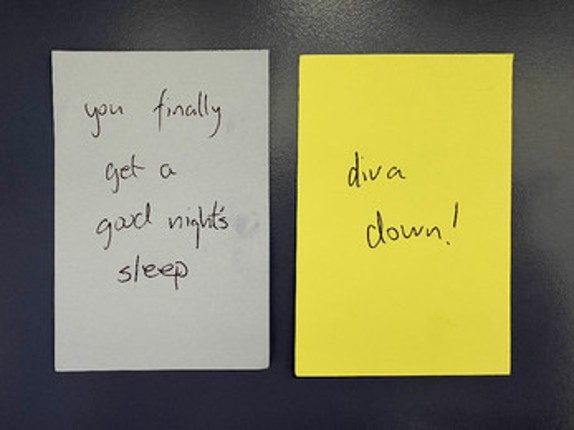 you finally
get a
good night's
sleep
diva
down!